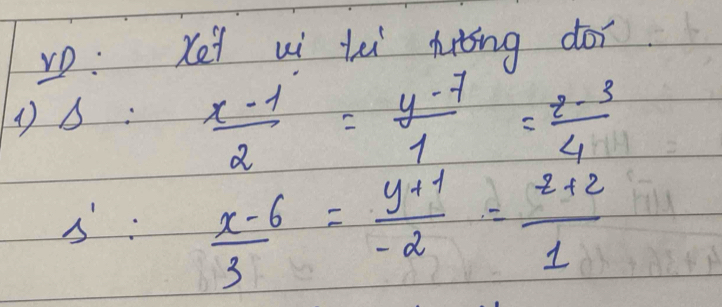 VD: Xét vị trí tương đối.
1) Δ : (x-1)/2 = (y-7)/1 = (z-3)/4
Δ' : (x-6)/3 = (y+1)/-2 = (z+2)/1